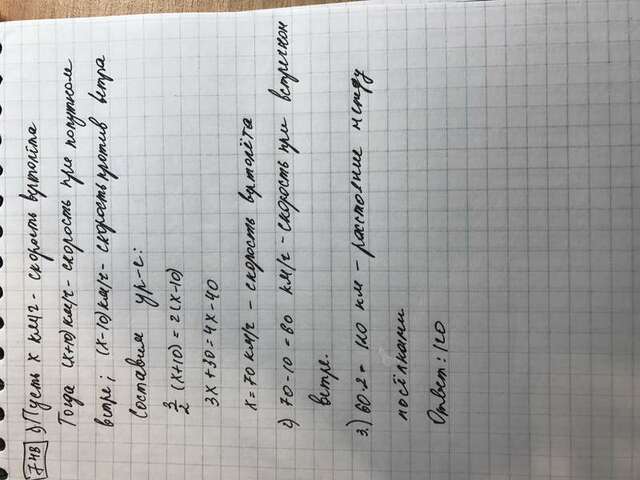 748 1) Пусть x км/г - скорость вертолёта
Тогда (x+10) км/г - скорость при попутном
ветре; (x-10) км/г - скорость против ветра
Составим ур-е:
3/2 (x+10) = 2(x-10)
3x+30=4x-40
x=70 км/г - скорость вертолёта
2) 70-10=60 км/г - скорость при встречном
ветре.
3.) 60·2= 120 км - расстояние между
посёлками
Ответ: 120